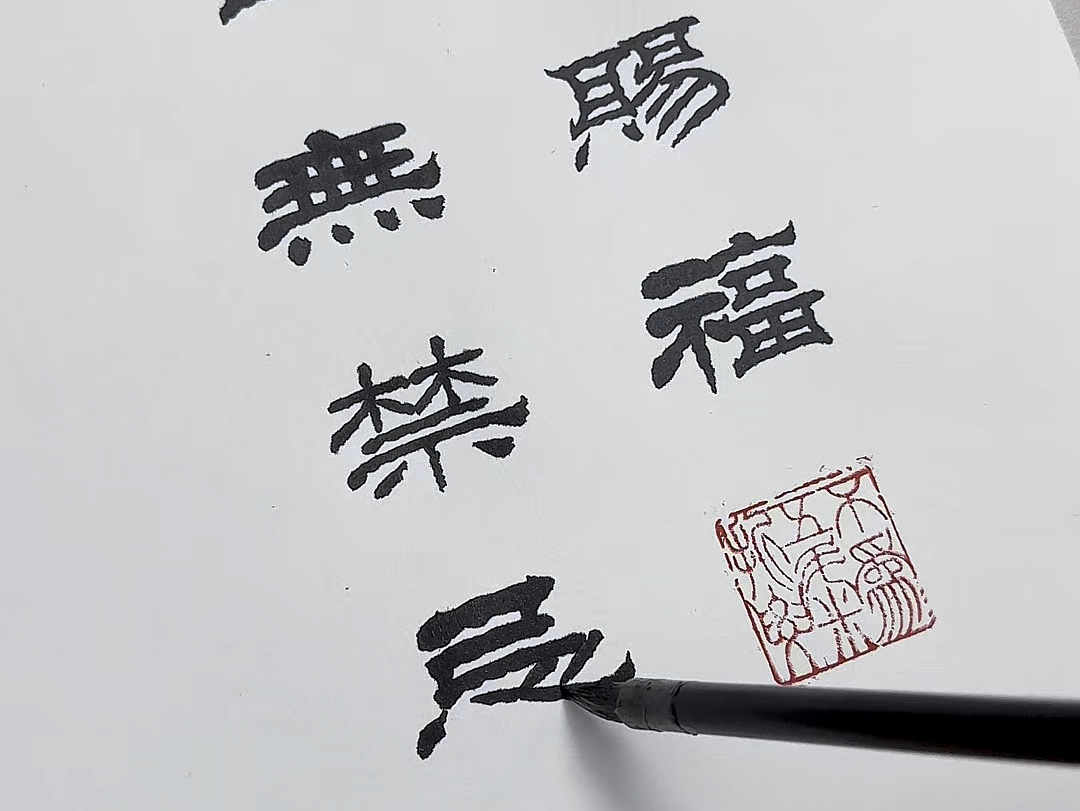 賜福
無禁忌